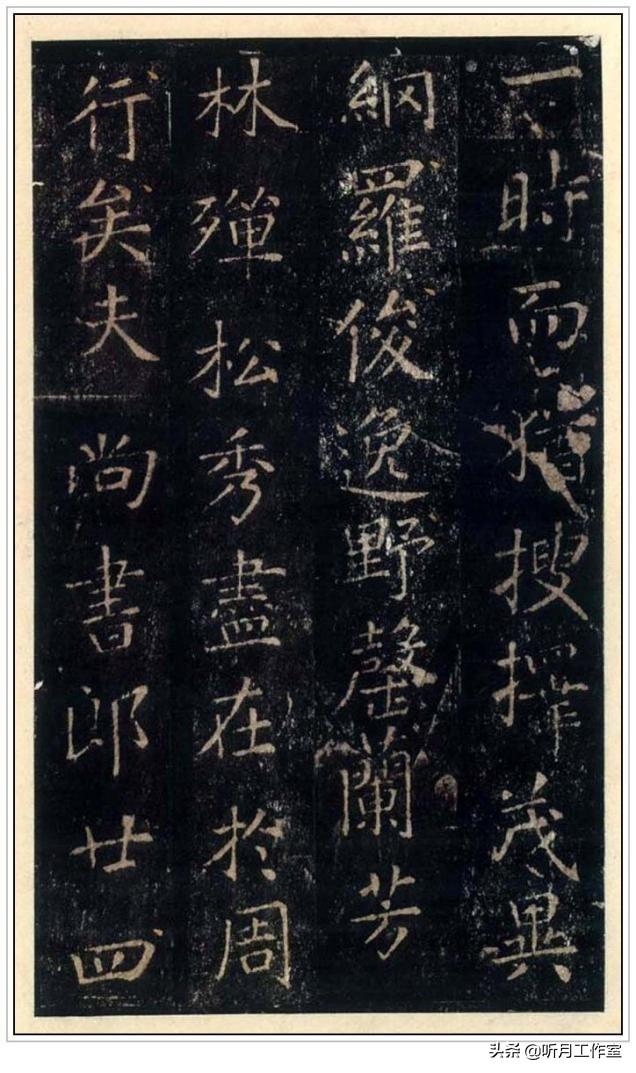 一時而猶搜擇茂異
網羅俊逸野罄蘭芳
林殫松秀盡在於周
行矣夫尚書郎廿四
头条 @听月工作室